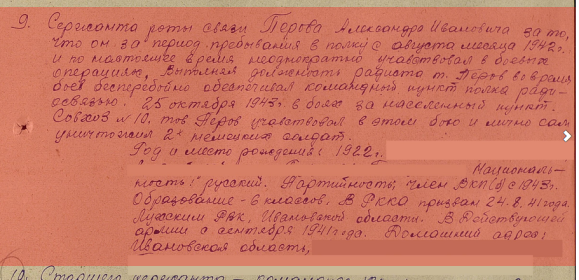 9. Сержанта роты связи Перова Александра Ивановича за то,
что он за период пребывания в полку с августа месяца 1942 г.
и по настоящее время неоднократно участвовал в боевых
операциях, выполняя должность радиста т. Перов во время
боев бесперебойно обеспечивал командный пункт полка ради-
освязью. 25 октября 1943 г. в боях за населенный пункт.
Совхоз № 10. тов Перов участвовал в этом бою и лично сам
уничтожил 2х немецких солдат.
Год и место рождения: 1922 г.
Националь-
ность: русский. Партийность; член ВКП(б) с 1943 г.
Образование - 6 классов. В РККА призван 24.8.41 года.
РВК, Ивановской области. В действующей
армии с сентября 1941 года. Домашний адрес:
Ивановская область,
10. Старшего сержанта -